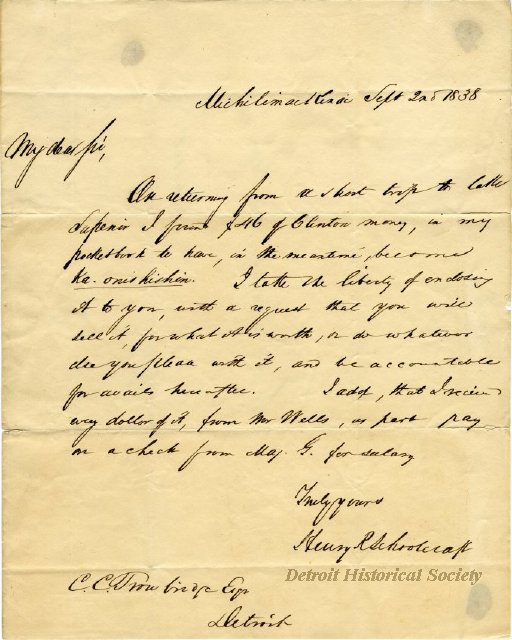 Michilimackinac Sept 2nd 1838
My dear Sir,
On returning from a short trip to lake
Superior I found $46 of Clinton money, in my
pocketbook to have, in the meantime, become
ka. onishishin. I take the liberty of enclosing
it to you, with a request that you will
sell it, for what it is worth, or do whatever
else you please with it, and be accountable
for avails hereafter. I add, that I received
every dollar of it, from Mr Wells, as part pay
on a check from Maj. G. for salary
Truly yours
Henry R Schoolcraft
Detroit Historical Society
C. C. Trowbridge Esqr
Detroit